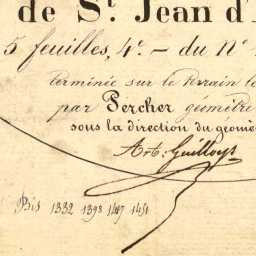 de St. Jean d'
5 feuilles, 4e. — du N°
terminée sur le terrain le
par Percher géomètre
sous la direction du géomè
Art: Guilloys
Bis 1332 1393 1447 1451